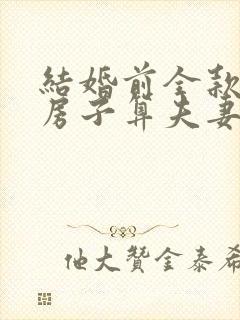 結婚前全款
房子算夫妻
他大贊金泰希